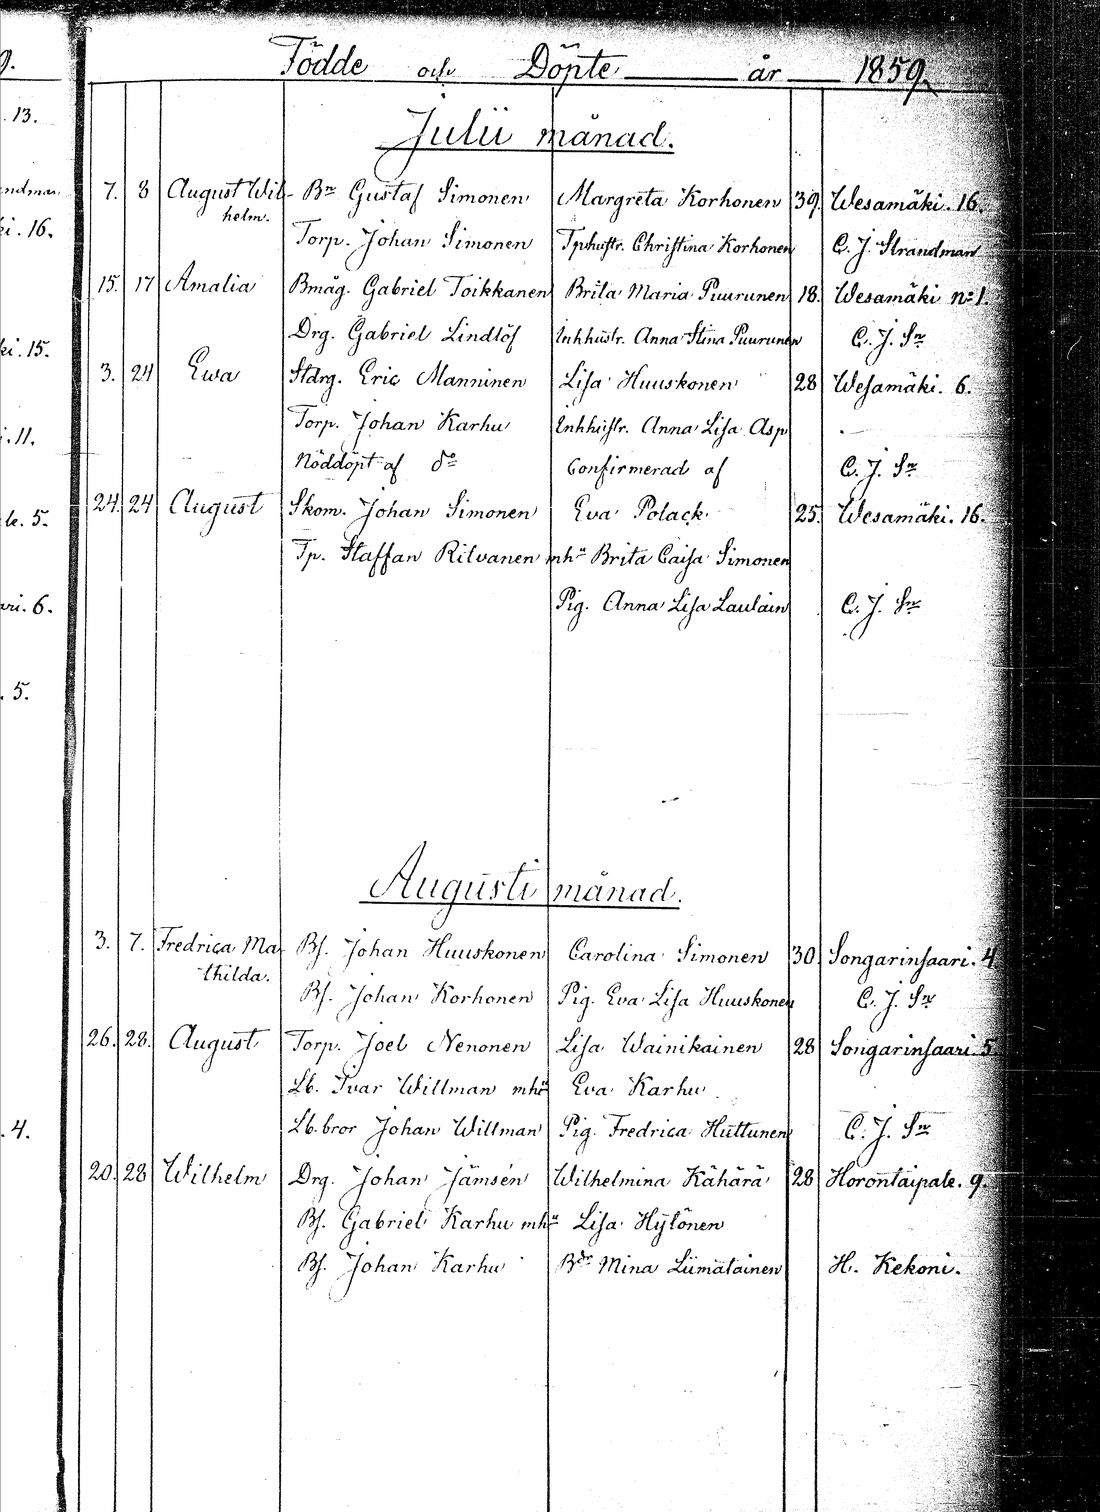 9.
Födde och Döpte år 1859.
13.
Julii månad.
7. 8 August Wil- Bn Gustaf Simonen Margreta Korhonen 39. Wesamäki. 16.
helm.
ki. 16.
Torp. Johan Simonen Tphustr. Christina Korhonen C. J. Strandman
15. 17 Amalia Bmåg. Gabriel Toikkanen Brita Maria Puurunen 18. Wesamäki no 1.
Drg. Gabriel Lindlöf Inhhustr. Anna Stina Puurunen C. J. Sn
ki. 15.
3. 24 Ewa Stdrg. Eric Manninen Lisa Huuskonen 28 Wesamäki. 6.
Torp. Johan Karhu Inhhustr. Anna Lisa Asp
i. 11.
Nöddöpt af do Confirmerad af C. J. Sn
24. 24 August Skom. Johan Simonen Eva Polack 25. Wesamäki. 16.
le. 5.
Tp. Staffan Ritvanen mhu Brita Caisa Simonen
ari. 6.
Pig. Anna Lisa Laulain C. J. Sn
. 5.
Augusti månad.
3. 7. Fredrica Ma- Bs. Johan Huuskonen Carolina Simonen 30. Songarinsaari. 4.
thilda.
Bs. Johan Korhonen Pig. Eva Lisa Huuskonen C. J. Sn
26. 28. August Torp. Joel Nenonen Lisa Wainikainen 28 Songarinsaari. 5.
Lb. Ivar Willman mhu Eva Karhu
. 4.
Lb. bror Johan Willman Pig. Fredrica Huttunen C. J. Sn
20. 28 Wilhelm Drg. Johan Jämsén Wilhelmina Kähärä 28 Horontaipale. 9.
Bs. Gabriel Karhu mhu Lisa Hytönen
Bs. Johan Karhu Bdr Mina Liimatainen H. Kekoni.